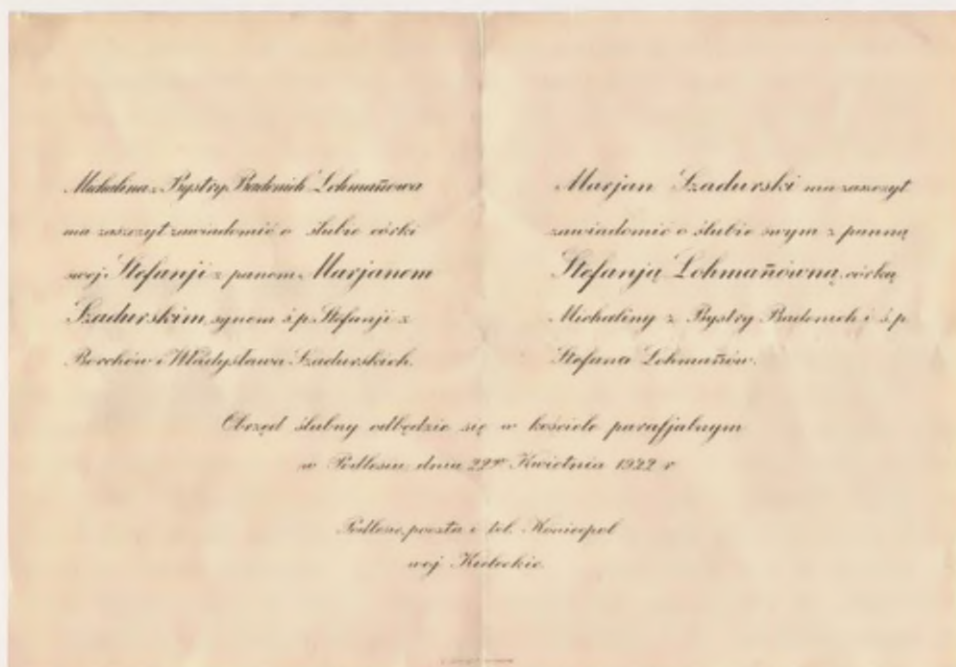 Michalina z Bystry Badenich Lohmañowa
ma zaszczyt zawiadomić o ślubie córki
swej Stefanji z panem Marjanem
Szadurskim, synem ś.p. Stefanji z
Borchów i Władysława Szadurskich.
Marjan Szadurski ma zaszczyt
zawiadomić o ślubie swym z panną
Stefanją Lohmañówną, córką
Michaliny z Bystry Badenich i ś.p.
Stefana Lohmañów.
Obrzęd ślubny odbędzie się w kościele parafjalnym
w Podlesiu dnia 22go Kwietnia 1922 r
Podlesie, poczta i tel. Koniecpol
woj Kieleckie.